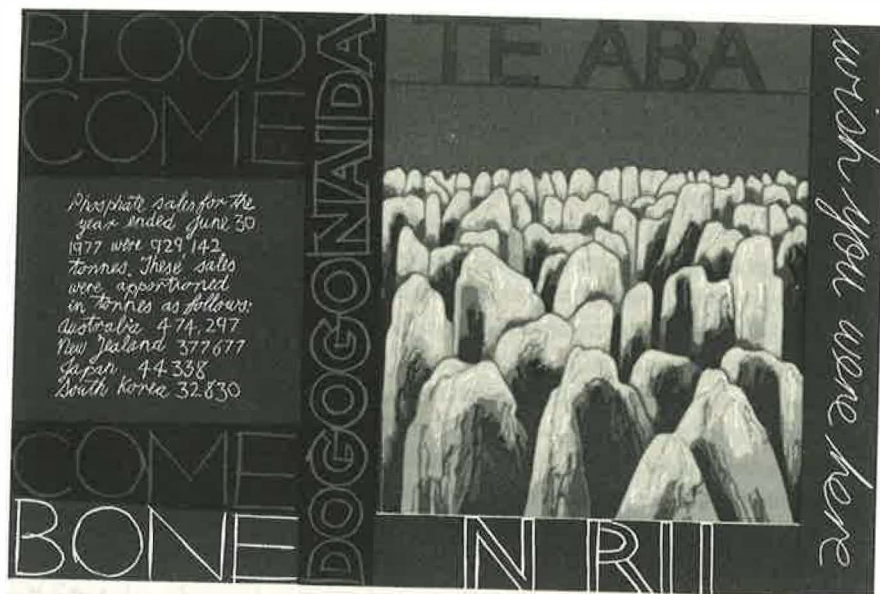 BLOOD
COME
Phosphate sales for the
year ended June 30
1977 were 929'142
tonnes. These sales
were apportioned
in tonnes as follows:
Australia 474,297
New Zealand 377677
Japan 44338
South Korea 32830
COME
BONE
DOGOGONAIDA
TE ABA
N RII
wish you were here